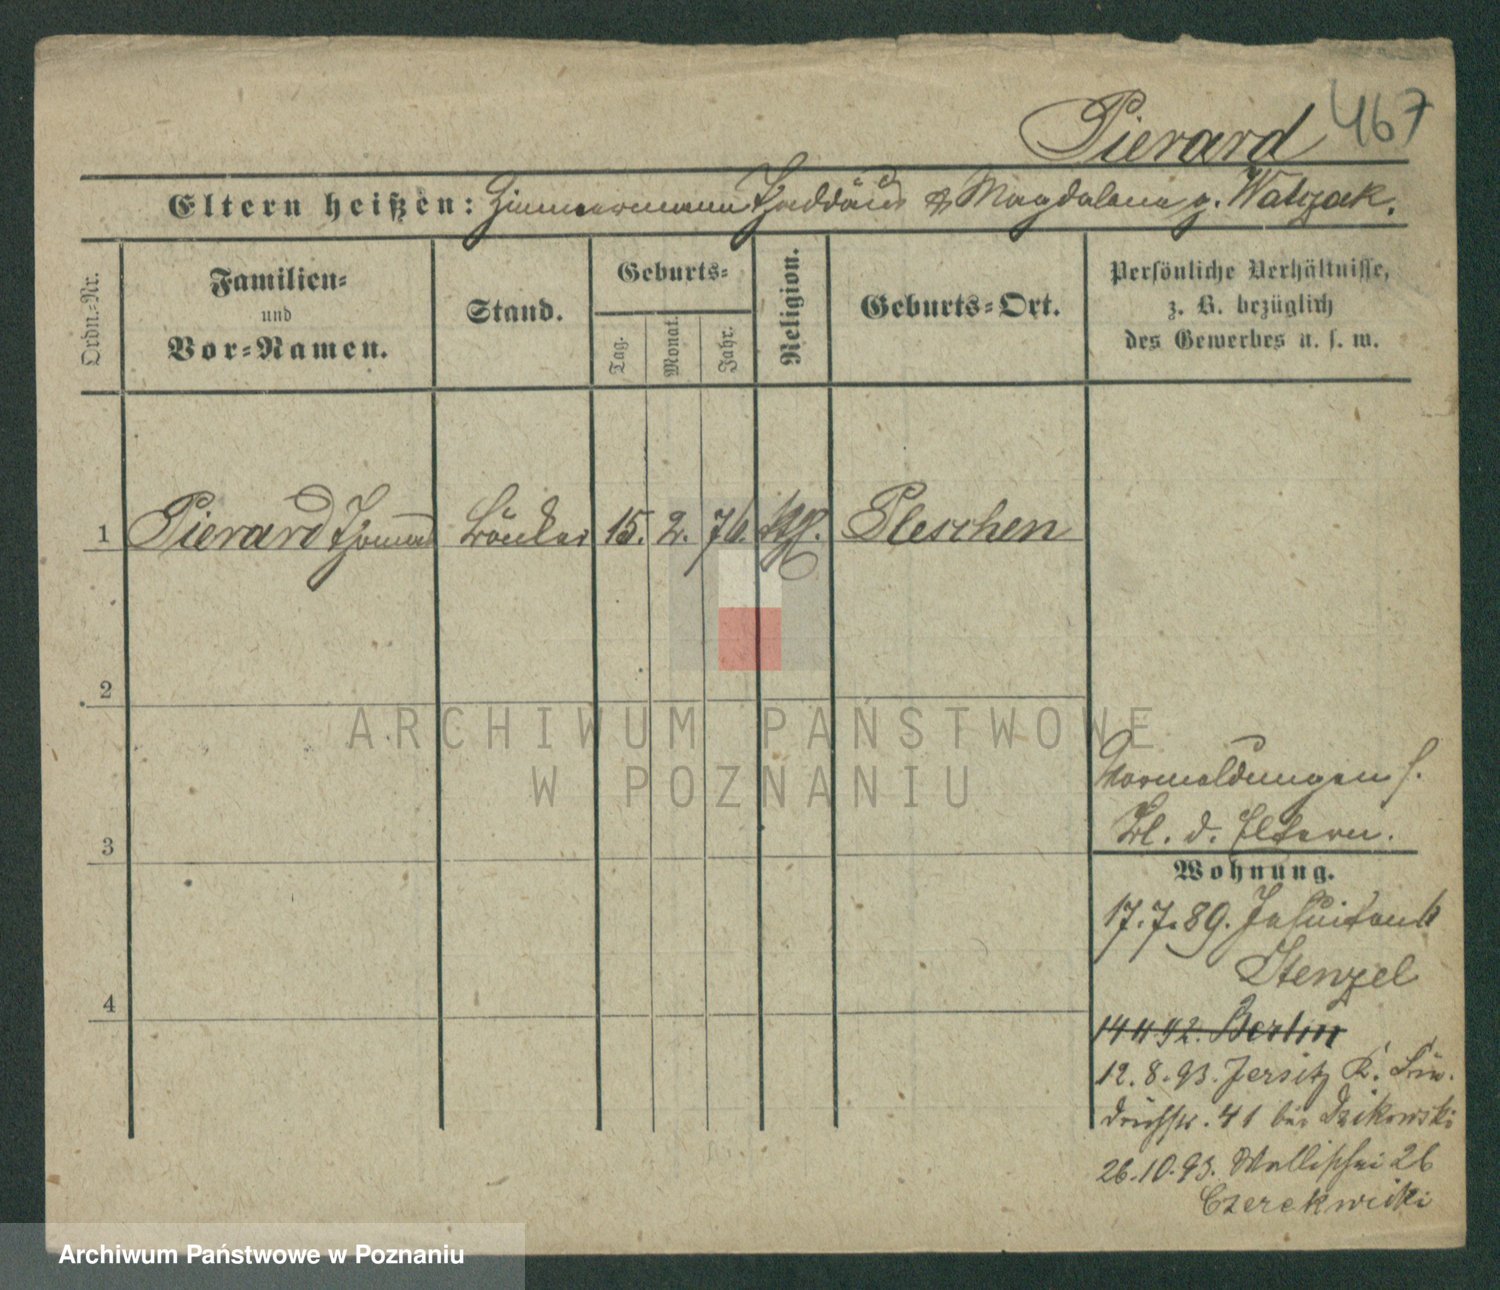 Pierard 467
Eltern heißen: Zimmermann Thaddäus & Magdalena g. Walczak.
Ordn.-Nr.
Familien-
und
Vor-Namen.
Stand.
Geburts-
Tag.
Monat.
Jahr.
Religion.
Geburts-Ort.
Persönliche Verhältnisse,
z. B. bezüglich
des Gewerbes u. s. w.
1 Pierard Thomas 15. 2. 76. kth. Pleschen
2
3
4
ARCHIWUM PAŃSTWOWE
W POZNANIU
Vormeldungen s.
Bl. d. Eltern.
Wohnung.
17.7.89. Jesuitenstr
Stenzel
14 4 92. Berlin
12.8.93. Jersitz
41 bei Dzikowski
26.10.93. Wallischei 26
Czerekwicki
Archiwum Państwowe w Poznaniu